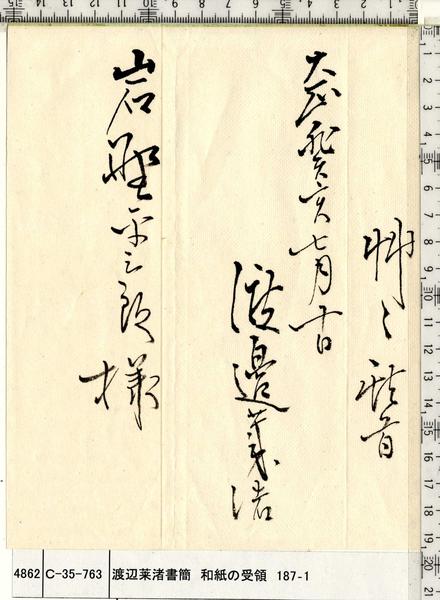 艸々 首
大正癸亥七月十日
渡邊莱渚
岩野平三郎様
4862 C-35-763 渡辺莱渚書簡 和紙の受領 187-1